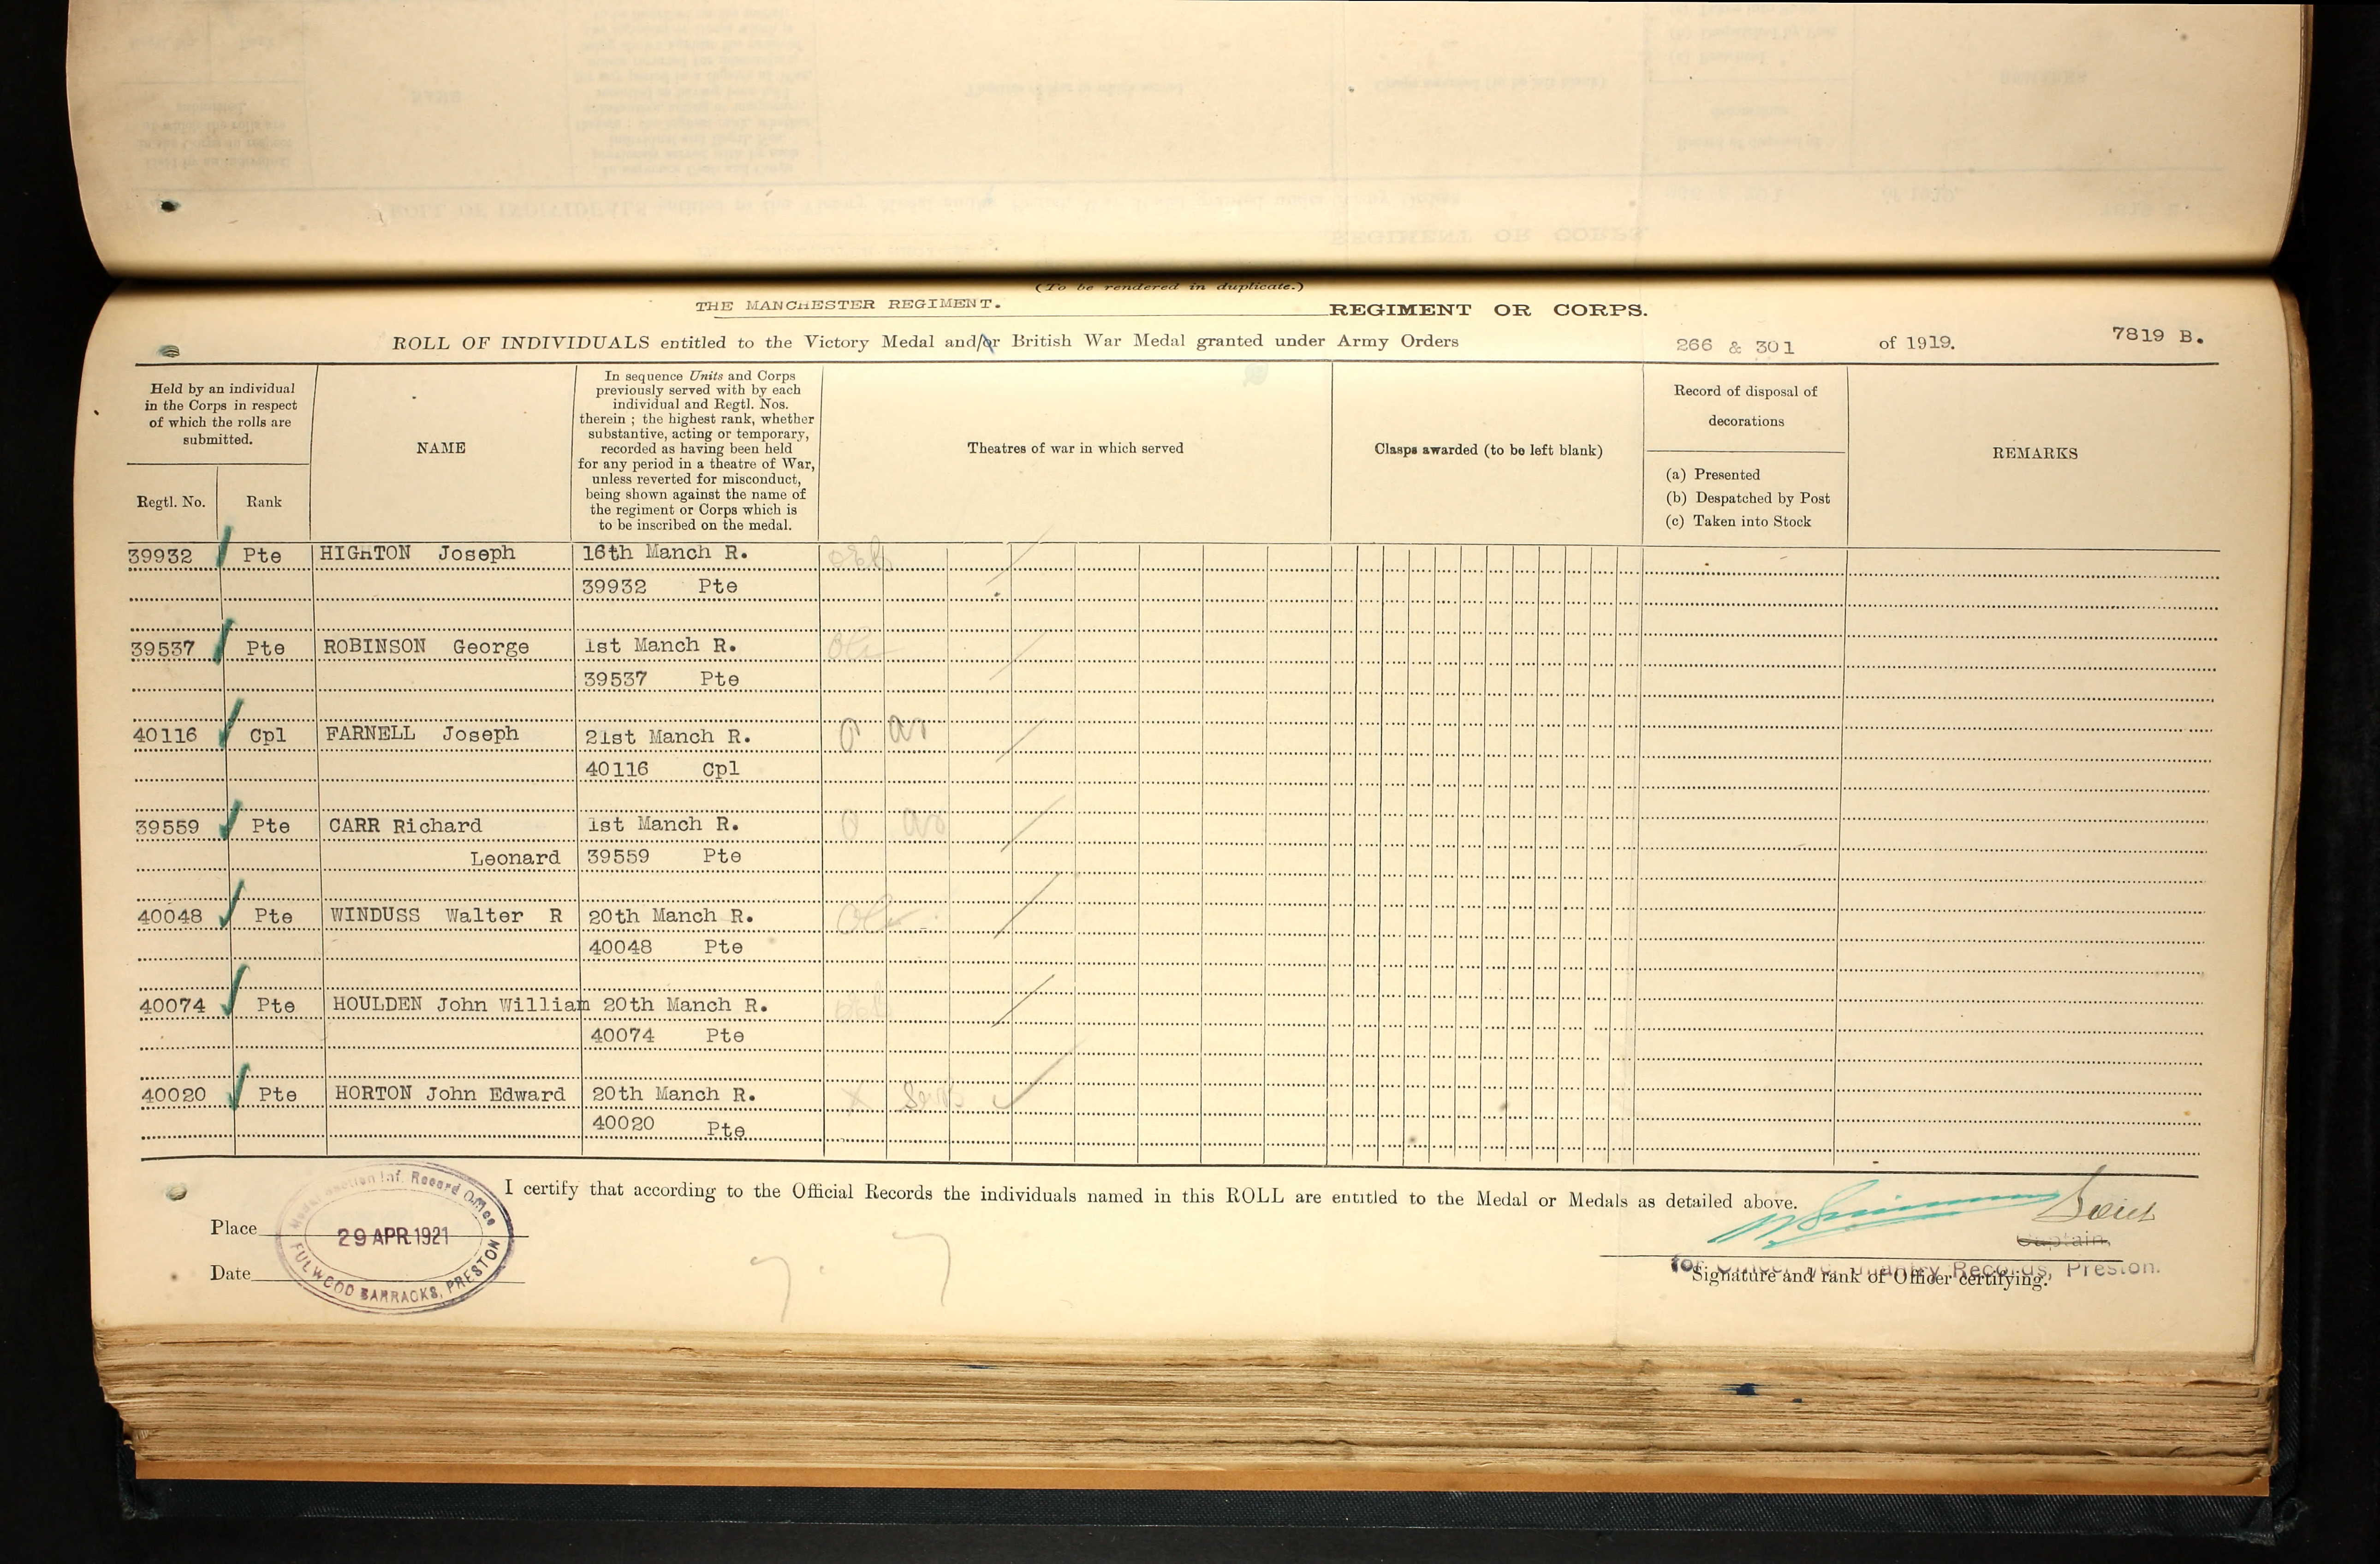 (To be rendered in duplicate.)
THE MANCHESTER REGIMENT. REGIMENT OR CORPS.
ROLL OF INDIVIDUALS entitled to the Victory Medal and/or British War Medal granted under Army Orders 266 & 301 of 1919. 7819 B.
Held by an individual
in the Corps in respect
of which the rolls are
submitted.
Regtl. No. Rank
NAME
In sequence Units and Corps
previously served with by each
individual and Regtl. Nos.
therein ; the highest rank, whether
substantive, acting or temporary,
recorded as having been held
for any period in a theatre of War,
unless reverted for misconduct,
being shown against the name of
the regiment or Corps which is
to be inscribed on the medal.
Theatres of war in which served
Clasps awarded (to be left blank)
Record of disposal of
decorations
(a) Presented
(b) Despatched by Post
(c) Taken into Stock
REMARKS
39932 Pte HIGHTON Joseph 16th Manch R.
39932 Pte
39537 Pte ROBINSON George 1st Manch R.
39537 Pte
40116 Cpl FARNELL Joseph 21st Manch R.
40116 Cpl
39559 Pte CARR Richard 1st Manch R.
Leonard 39559 Pte
40048 Pte WINDUSS Walter R 20th Manch R.
40048 Pte
40074 Pte HOULDEN John William 20th Manch R.
40074 Pte
40020 Pte HORTON John Edward 20th Manch R.
40020 Pte
I certify that according to the Official Records the individuals named in this ROLL are entitled to the Medal or Medals as detailed above.
Place
Date
Inf. Record Office
29 APR 1921
FULWOOD BARRACKS, PRESTON
Captain.
for Infantry Records, Preston.
Signature and rank of Officer certifying.